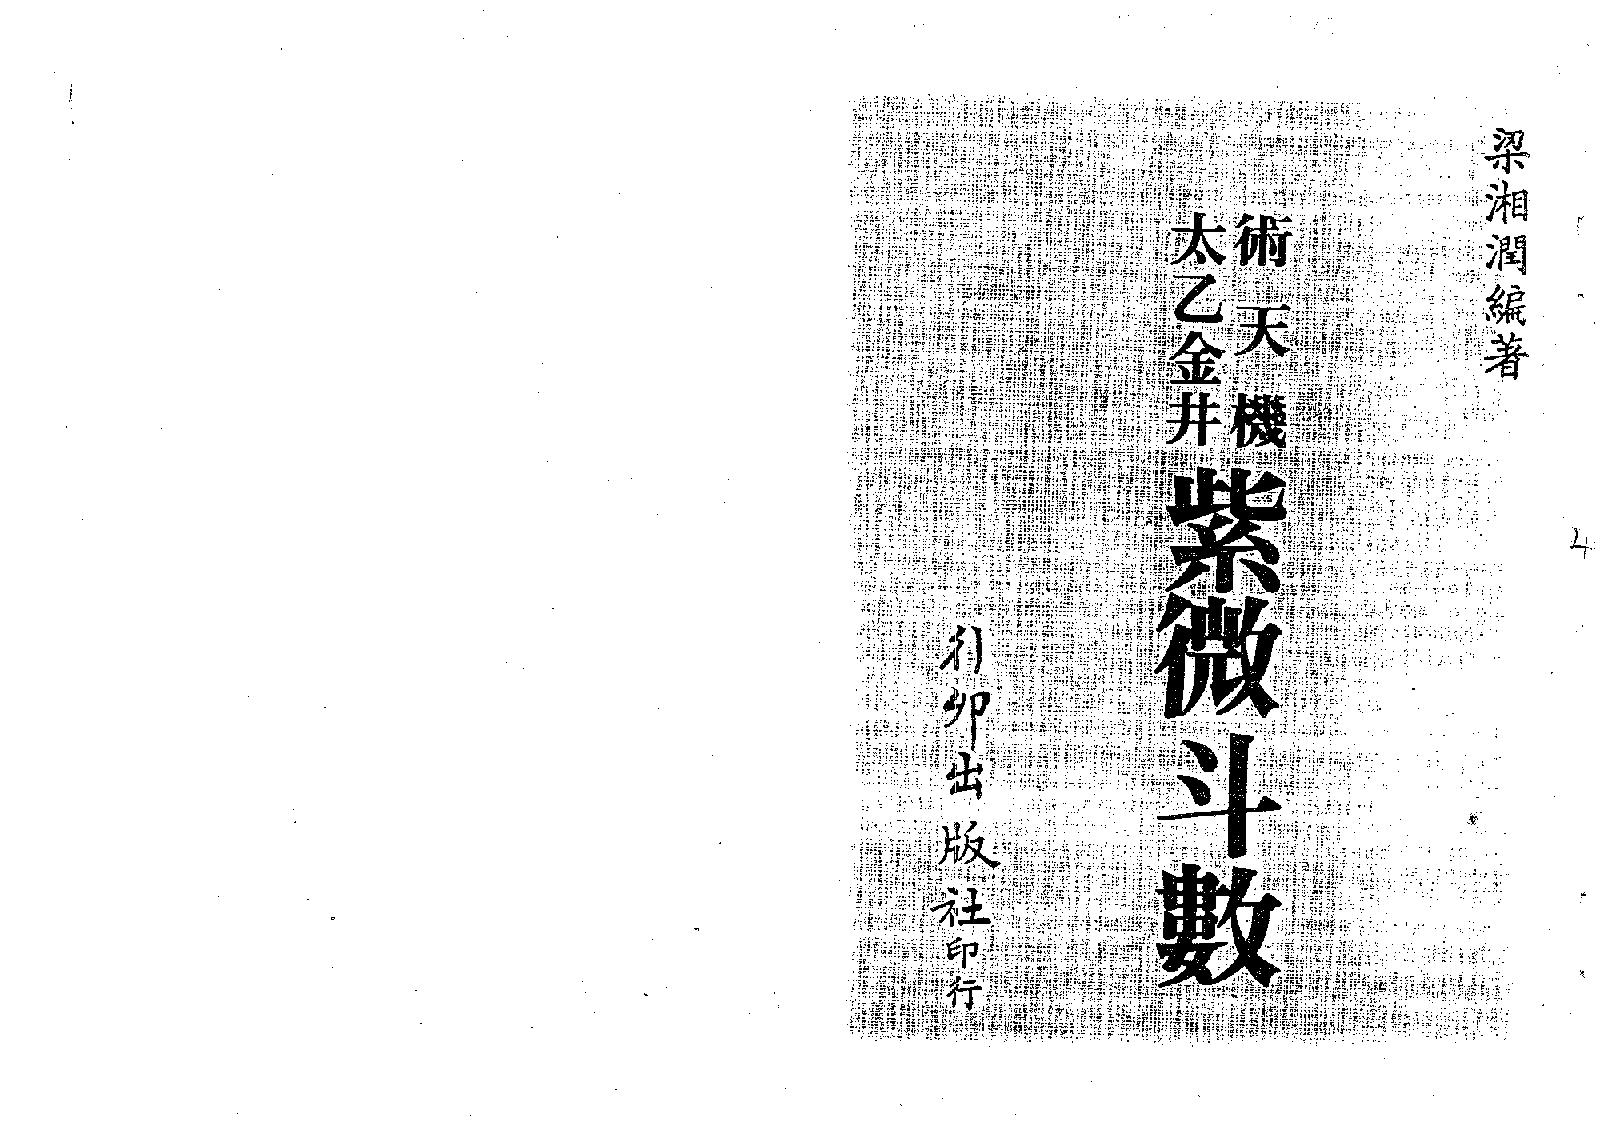 梁湘潤編著
術天機
太乙金井
紫微斗數
行卯出版社印行
4